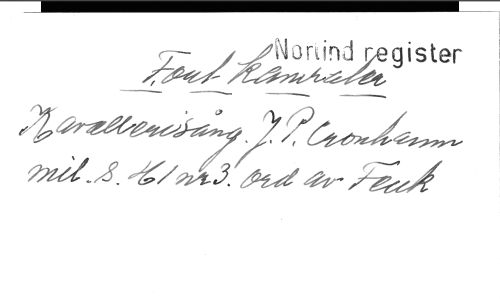 Norlind register
Fout kamrater
Kavallerisång. J. P. Cronhamn
mil. s. H1 nr 3. ord av Feuk